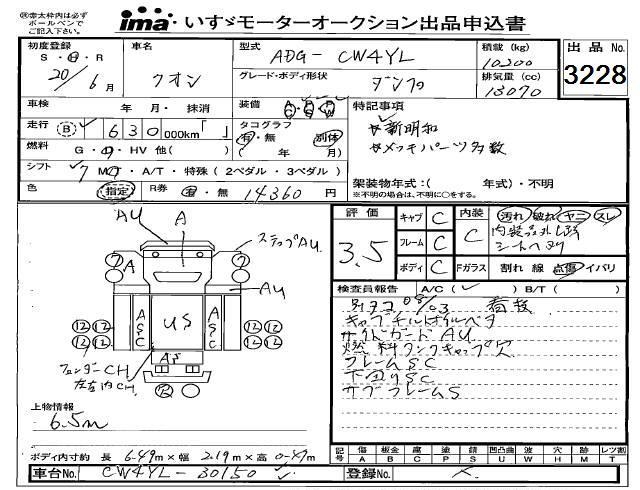 ㊟赤太枠内は必ず
ボールペンで
ご記入下さい。
ima・いすゞモーターオークション出品申込書
初度登録 S・H・R 20/6月
車名 クオン
型式 ADG-CW4YL
グレード・ボディ形状 ダンプ
積載 (kg) 10200
排気量 (cc) 13070
出品No. 3228
車検 年 月・抹消
装備 A/C P/S P/W
特記事項
新明和
メッキパーツ多数
走行 B 630000km「 」
タコグラフ 有・無 別体
( 年 月)
燃料 G・D・HV 他( )
シフト 7 MT・A/T・特殊 (2ペダル・3ペダル)
架装物年式:( 年式)・不明
※不明の場合は、不明に○をする。
色 指定
R券 有・無 14360円
評価 3.5
キャブ C
フレーム C
ボディ C
内装 C
汚れ 破れ ヤニ スレ
シートヘタリ
Fガラス 割れ 線 点傷 イバリ
検査員報告 A/C( ) B/T( )
別タコ 08/03 有
サイドガードAU
燃料タンクキャップ欠
フレームSC
下回りSC
サブフレームS
AU
A
ステップAU
A
AU
A S C
US
A S C
AS
フェンダーCH
左右内CH
上物情報
6.5m
ボディ内寸約 長 6.49m×幅 2.19m×高 0.47m
記号 傷 A 板金 B 腐 C 塗 P 錆 S 凹凸曲 U 波 W 穴 H 跡 M レツ割 T
車台No. CW4YL-30150
登録No.